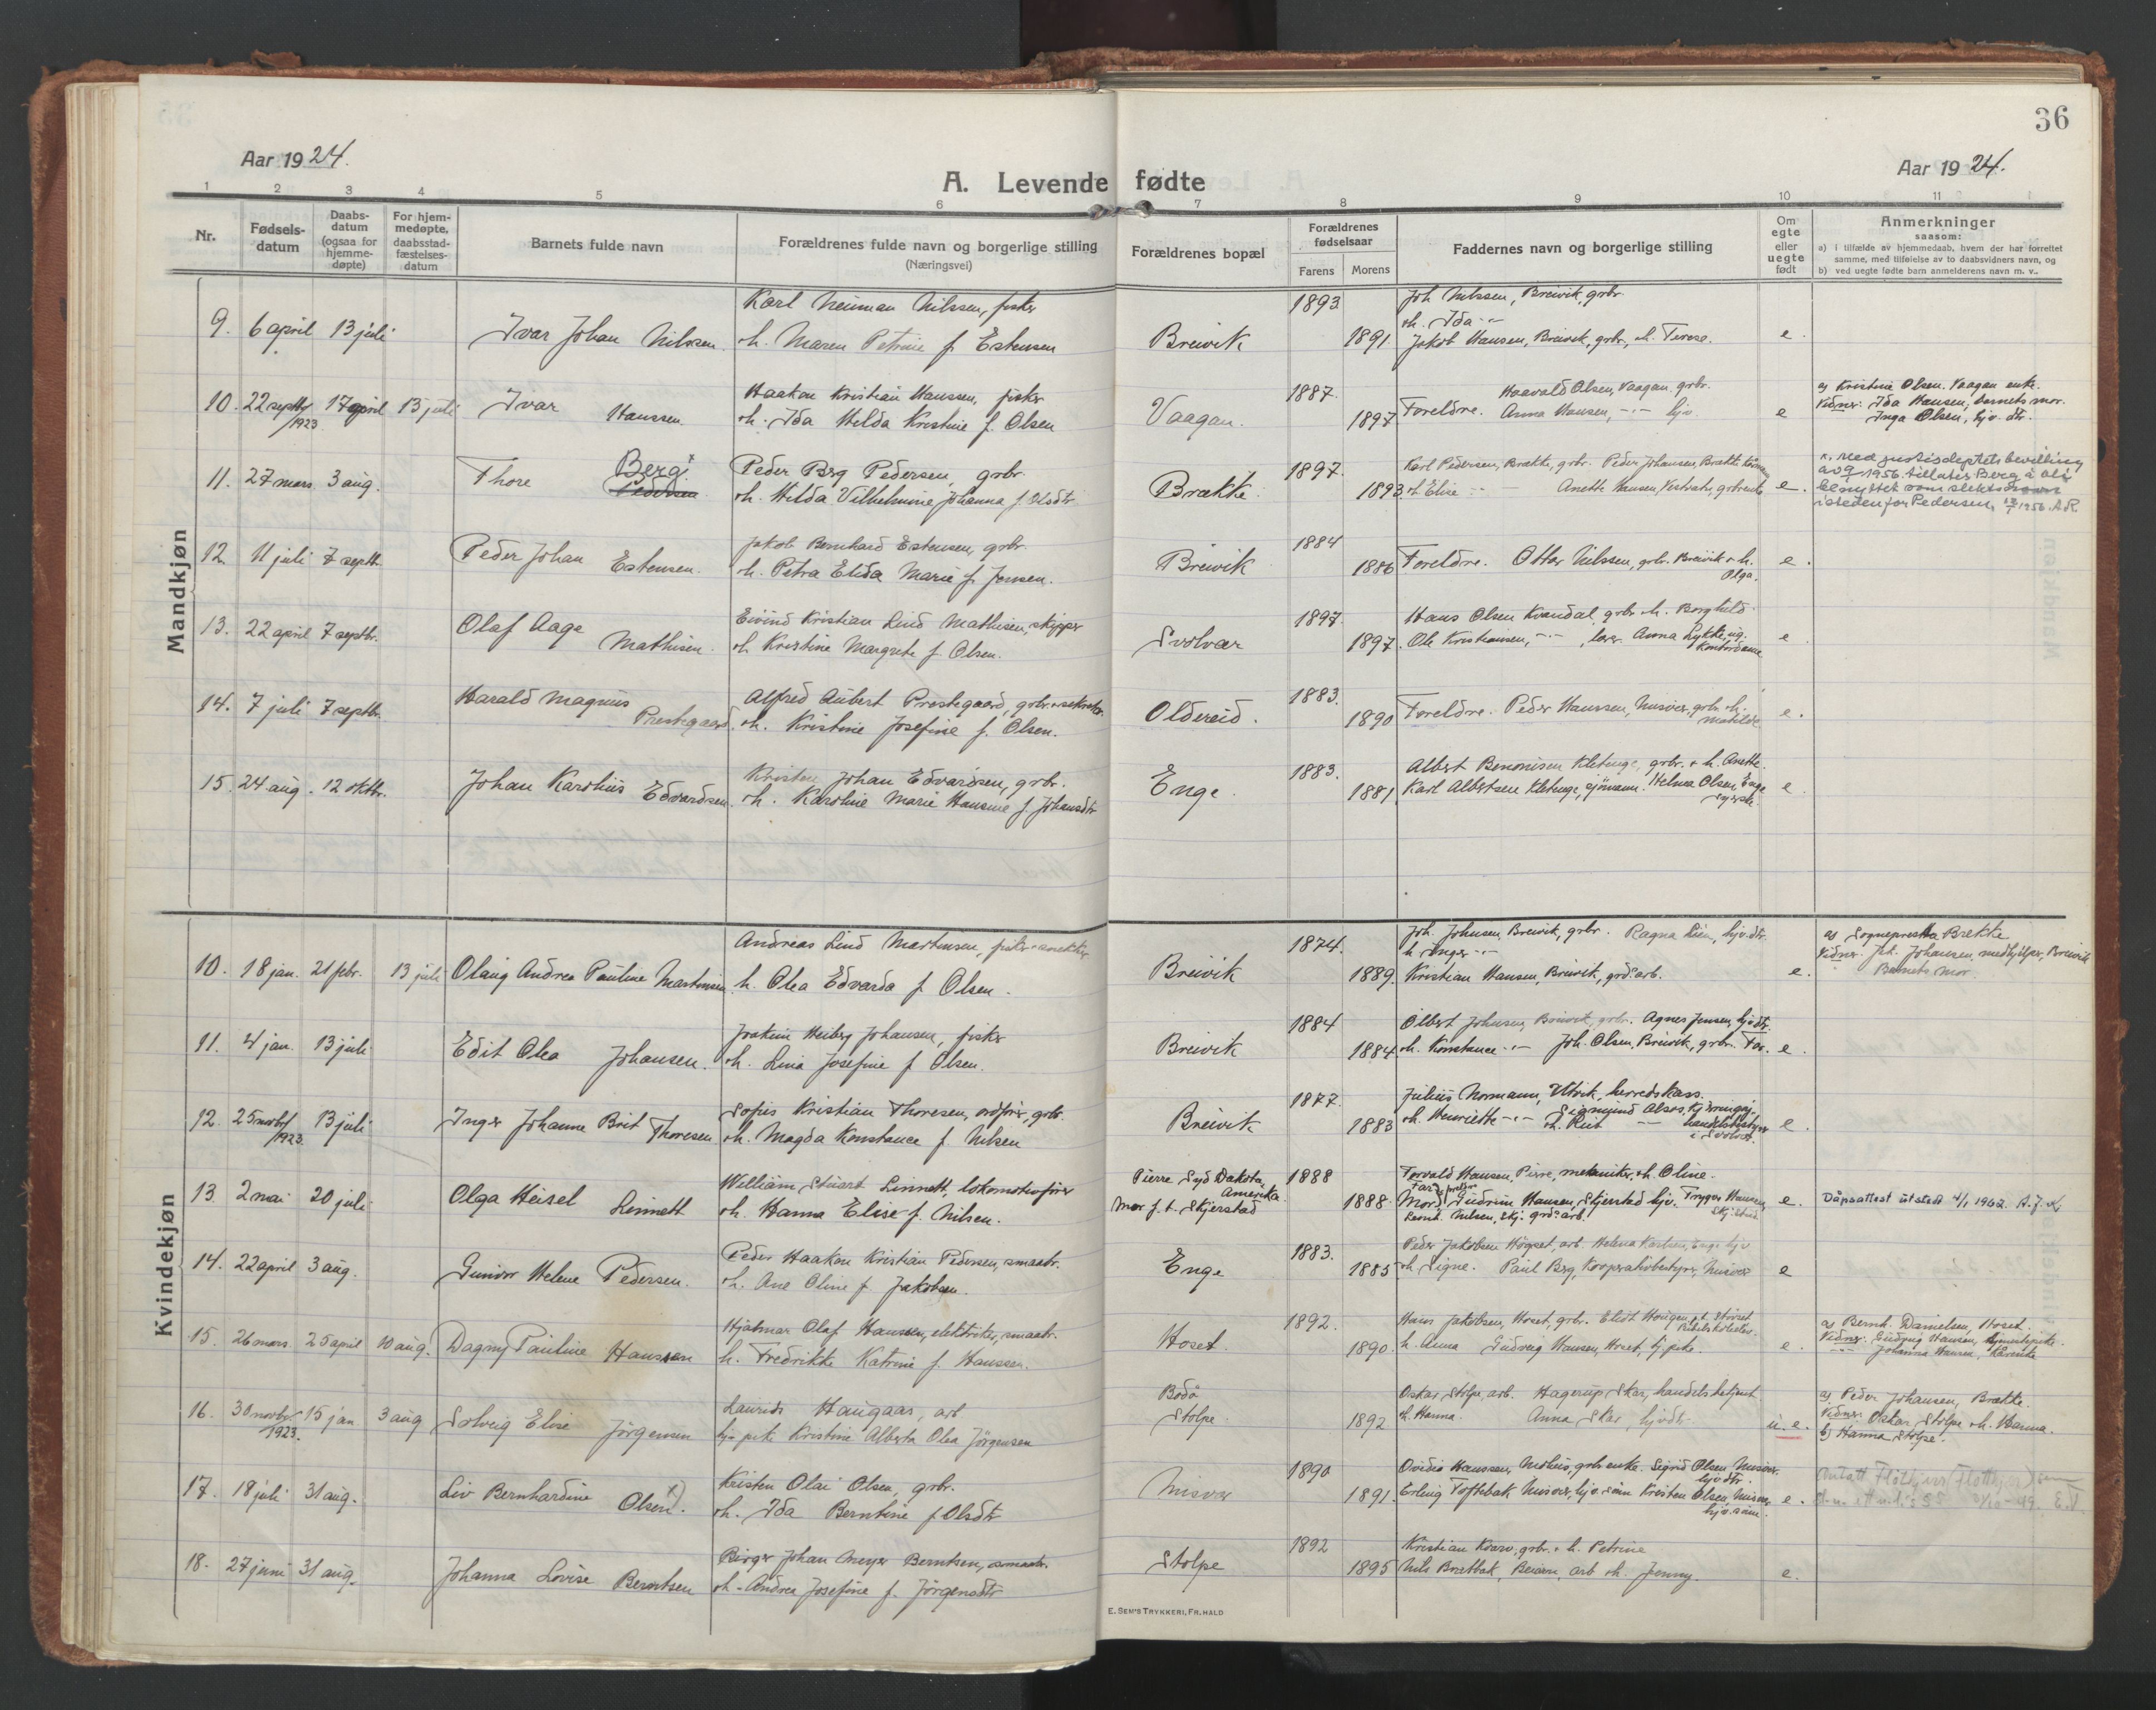 36
Aar 1924.
Aar 1924.
A. Levende fødte
1 2 3 4 5 6 7 8 9 10 11
Nr.
Fødsels-
datum
Daabs-
datum
(ogsaa for
hjemme-
døpte)
For hjem-
medøpte,
daabsstad-
fæstelses-
datum
Barnets fulde navn
Forældrenes fulde navn og borgerlige stilling
(Næringsvei)
Forældrenes bopæl
Forældrenes
fødselsaar
Farens
Morens
Faddernes navn og borgerlige stilling
Om
egte
eller
uegte
født
Anmerkninger
saasom:
a) i tilfælde av hjemmedaab, hvem der har forrettet
samme, med tilføielse av to daabsvidners navn, og
b) ved uegte fødte barn anmelderens navn m. v..
Mandkjøn
9. 6 april 13 juli
Ivar Johan Nilssen
Karl Neuman Nilssen, fisker
h. Maren Petrine f. Estensen
Breivik
1893
1891
Joh. Nilssen, Breivik, grbr.
h. Ida
Jakob Hansen, Breivik, grbr., h. Terese.
e.
10. 22 septb/1923 17 april 13 juli
Ivar Hanssen
Haakon Kristian Hanssen, fisker
h. Ida Hilda Kristine f. Olsen
Vaagan.
1887.
1897
Haavald Olsen, Vaagan, grbr.
Foreldre. Anna Hansen, -"- hjv.
e
a) Kristine Olsen, Vaagan enke.
Vidner: Ida Hansen, barnets mor.
Inga Olsen, hjv. dtr.
11. 27 mars 3 aug.
Thore Berg x
Pedersen
Peder Berg Pedersen, grbr.
h. Hilda Vilhelmine Johanna f. Olsdtr
Brække
1897.
1893
Karl Pedersen, Brække, grbr. Peder Johansen, Brække
h. Elise -"- Anette Hansen,
e.
x. Med justisdeptets bevilling
av 9/ 1956 tillates Berg å bli
benyttet som slektsnavn
istedenfor Pedersen, 1956. A.R.
12. 11 juli 7 septb.
Peder Johan Estensen.
Jakob Bernhard Estensen, grbr.
h. Petra Elida Marie f. Jensen.
Breivik
1884
1886
Foreldre. Ottar Nilssen, grbr. Breivik + h.
Olga.
e.
13. 22 april 7 septbr.
Olaf Aage Mathisen.
Eivind Kristian Lind Mathisen, skipper
h. Kristine Margrete f. Olsen.
Svolvær
1897.
1897.
Hans Olsen Kvandal, grbr. h. Borghild.
Ole Kristiansen, -"- , Anna Lykke, ug.
Kontordame
e
14. 7 juli 7 septbr.
Harald Magnus Prestegaard
Alfred Aubert Prestegaard, grbr. + sekretær
h. Kristine Josefine f. Olsen.
Oldereid.
1883.
1890
Foreldre. Peder Hanssen, Misvær, grbr. h.
Matilde
e.
15. 24 aug. 12 oktbr.
Johan Karolius Edvardsen
Kristen Johan Edvardsen, grbr.
h. Karoline Marie Hansine f. Johansdtr
Enge.
1883.
1881
Albert Benonisen Kletenge, grbr. + h. Anette.
Karl Albertsen Kletenge, sjömann. Helma Olsen, Enge
syerske.
e
Kvindekjøn
10. 18 jan. 21 febr. 13 juli
Olaug Andrea Pauline Martinsen
Andreas Lind Martinsen, fisker + snekker
h. Olea Edvarda f. Olsen.
Breivik
1874.
1889.
Joh. Johnsen, Breivik, grbr. Ragna Lien, hjv. dtr.
h. Inger -"-
Kristian Hansen, Breivik, grds. arb.
e.
a) Sogneprest Brekke
Vidner: Joh. Johansen, medhjælper, Breivik
Barnets mor.
11. 4 jan. 13 juli
Edit Olea Johansen.
Joakim Heiberg Johansen, fisker
h. Lina Josefine f. Olsen.
Breivik
1884
1884
Albert Johnsen, Breivik, grbr. Agnes Jensen, hjv. dtr.
h. Konstance -"- Joh. Olsen, Breivik, grbr. Far.
e.
12. 25 novb/1923 13 juli
Inger Johanne Brit Thoresen
Sofus Kristian Thoresen, ordfører, grbr.
h. Magda Konstance f. Nilsen
Breivik
1877.
1883
Julius Normann, Utvik, herredskass.
h. Henriette -"- Sigmund Alsos, Kjerringøy,
h. Rut -"- handelsbestyrer
i Svolvær.
e.
13. 2 mai 20 juli
Olga Heisel Linnett
William Stuart Linnett, lokomotivfører
h. Hanna Elise f. Nilsen.
Pierre Syd Dakota,
Amerika.
Mor f. t. Skjerstad
1888
1888
Torvald Hansen, Pierre, mekaniker, h. Oline.
Mor, Gudrun Hansen, Skjerstad hjv. Trygve Hansen,
Bernt. Nilsen, Skj. grds. arb.
e.
Dåpsattest utstedt 4/1 1962. A.J.L.
14. 22 april 3 aug.
Gunvor Helene Pedersen.
Peder Haakon Kristian Pedersen, smaabr.
h. Ane Oline f. Jakobsen.
Enge
1883.
1885
Peder Jakobsen Högset, arb. Helena Karlsen, Enge hjv
h. Signe. Paul Berg, Kooprativbestyrer, Misvær
e
15. 26 mars 25 april 10 aug.
Dagny Pauline Hanssen
Hjalmar Olaf Hanssen, elektriker, smaabr.
h. Fredrikke Katrine f. Hanssen.
Hoset.
1892.
1890.
Hans Jakobsen, Hoset, grbr. Eliot Haugen
h. Anna Gudveig Hansen, Hoset, hj. pike.
e.
a) Bernh. Danielsen, Hoset.
Vidner: Gudveig Hansen,
-"- Johanna Hansen,
16. 30 novbr./1923. 15 jan 3 aug
Solveig Elise Jörgensen
Laurids Haugaas, arb.
hjv. pike Kristine Alberta Olea Jörgensen
Bodø
Stolpe.
1892
Oskar Stolpe, arb. Hagerup Skar, handelsbetjent
h. Hanna. Anna Skar, hjv. dtr.
u. e.
a) Peder Johansen, Brække.
Vidner: Oskar Stolpe + h. Hanna.
b) Hanna Stolpe.
17. 18 juli 31 aug.
Liv Bernhardine Olsen. x)
Kristen Olai Olsen, grbr.
h. Ida Berntine f. Olsdtr
Misvær
1890
1891.
Ovidia Hanssen, Mohus, grbr. enke. Sigrid Olsen, Misvær.
hjv. dtr.
Erling Toftebak, Misvær, hjv. sön Kristen Olsen, Misvær
hjv. sönn.
e.
18. 27 juni 31 aug.
Johanna Lovise Berntsen
Birger Johan Meyer Berntsen, smaabr.
h. Andrea Josefine f. Jörgensdtr
Stolpe
1892
1895
Kristian Kvarv, grbr. + h. Petrine
Nils Brætbak, Beiarn, arb. h. Jenny.
e.
E. SEM'S TRYKKERI, FR.HALD